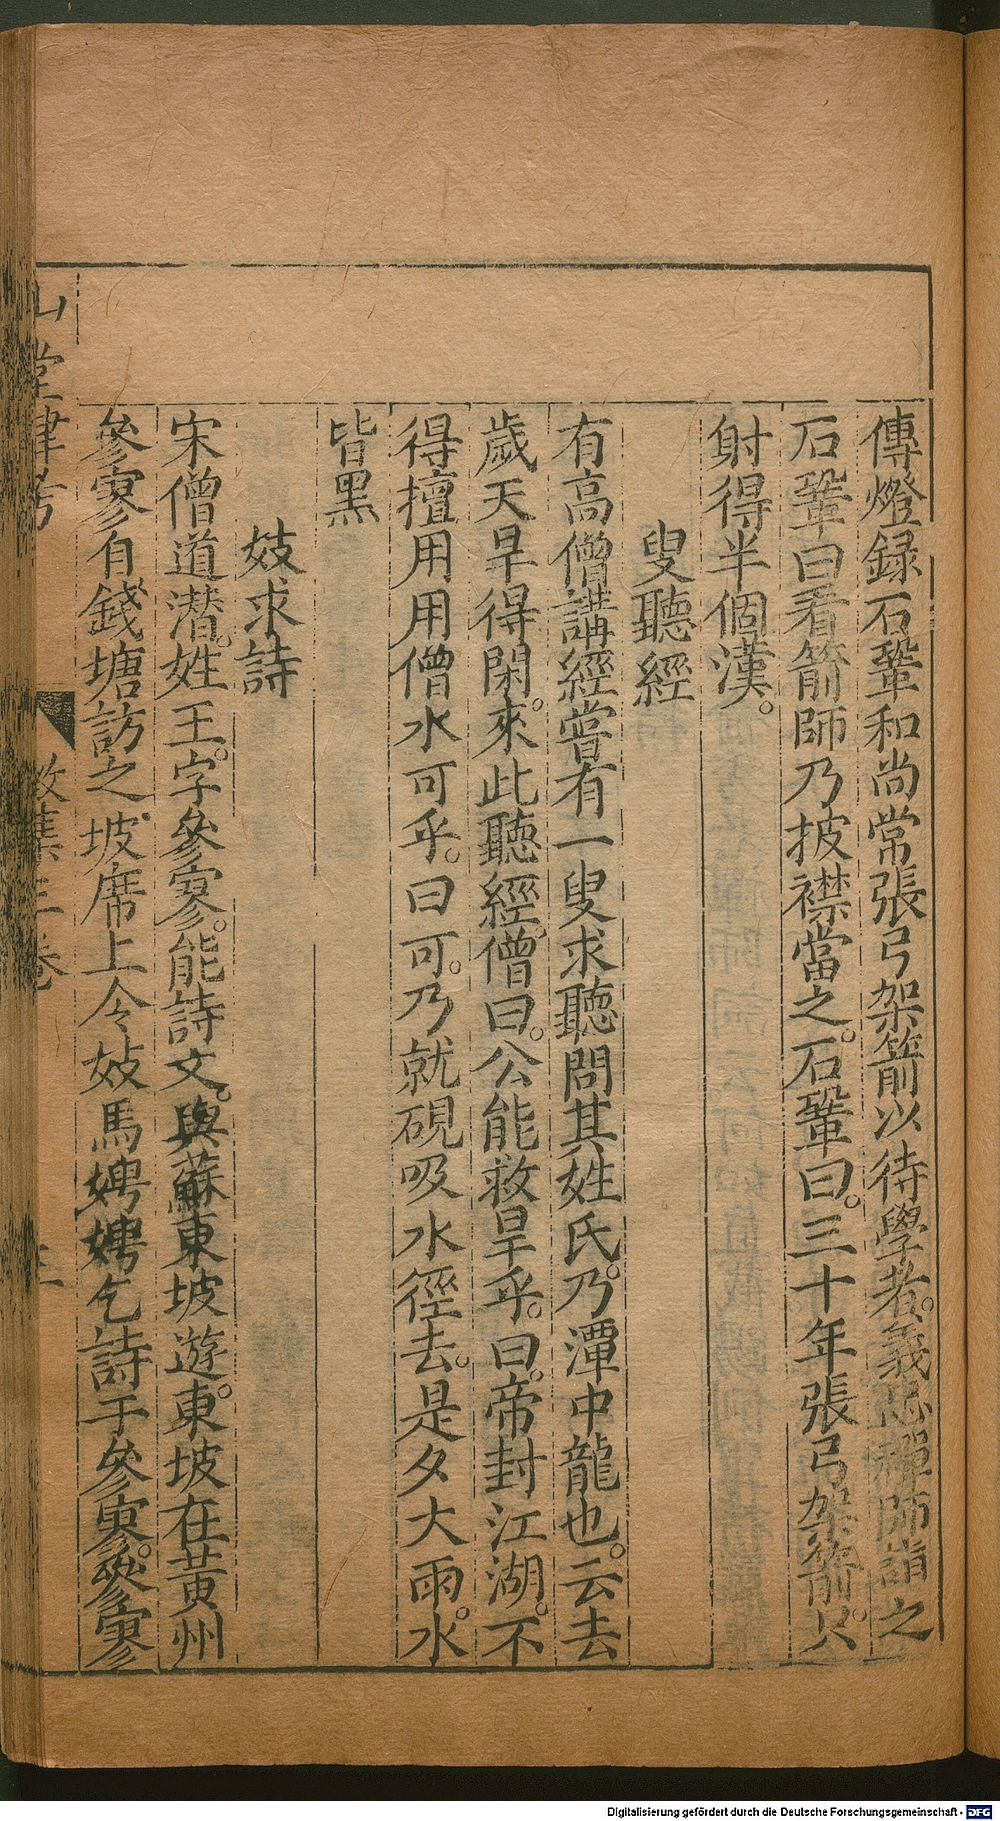 傳燈録石鞏和尚常張弓架箭以待學者。義忠禪師詣之
石鞏曰看箭師乃披襟當之。石鞏曰。三十年張弓架箭。只
射得半個漢。
叟聽經
有高僧講經嘗有一叟求聽問其姓氏。乃潭中龍也。云去
歲天旱得閑。來此聽經僧曰。公能救旱乎。曰。帝封江湖。不
得擅用用僧水可乎。曰可。乃就硯吸水徑去。是夕大雨。水
皆黑
妓求詩
宋僧道潜。姓王。字參寥。能詩文。與蘇東坡遊。東坡在黃州
參寥自錢塘訪之坡席上令妓馬娉娉乞詩于參寥。參寥
山堂肆考
三卷
Digitalisierung gefördert durch die Deutsche Forschungsgemeinschaft - DFG